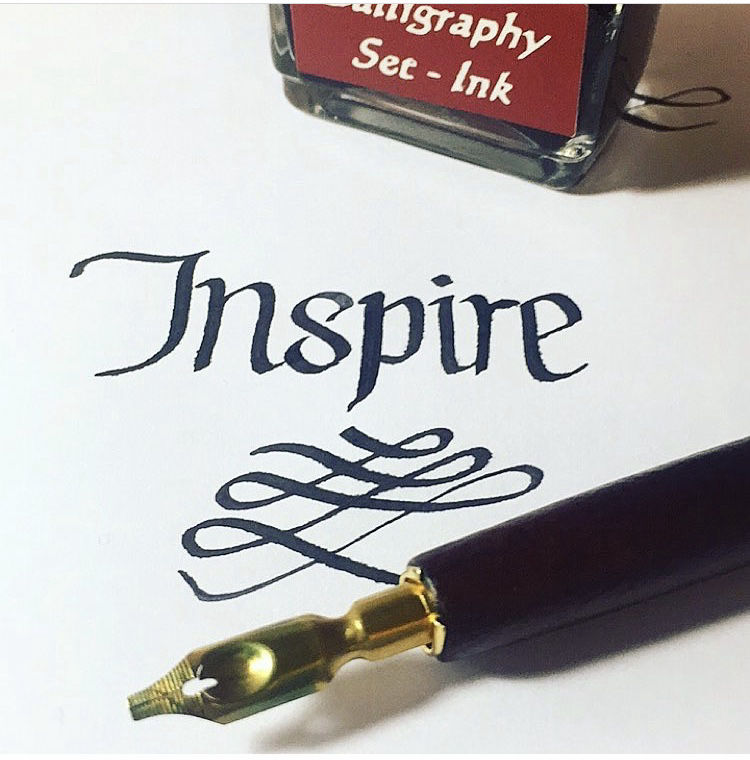 Calligraphy
Set - Ink
Inspire